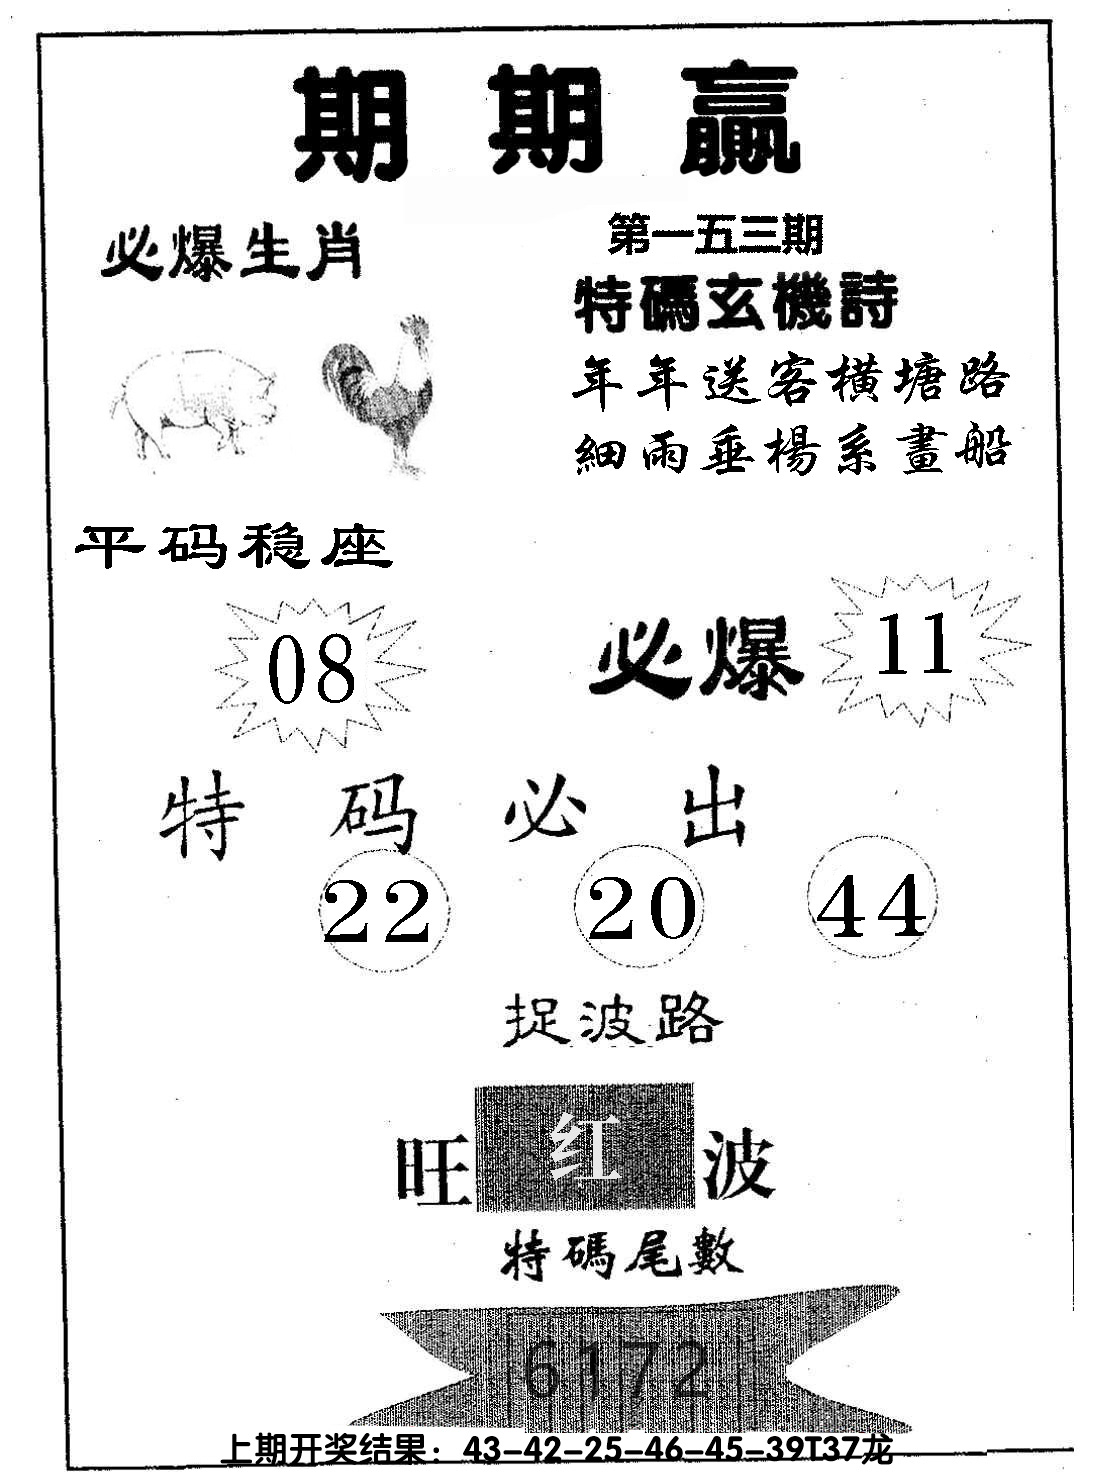 期期贏
必爆生肖
第一五三期
特碼玄機詩
年年送客横塘路
細雨垂楊系畫船
平码稳座
08
必爆 11
特码必出
22 20 44
捉波路
旺 红 波
特碼尾數
6172
上期开奖结果：43-42-25-46-45-39T37龙